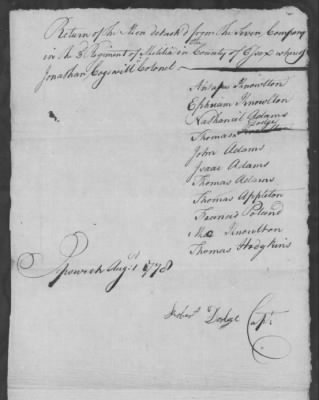 Return of the Men detach'd from the Seven Company
in the 3d Regiment of Militia in County of Essex whereof
Jonathan Cogswill Colonel
Knowlton
Ephraim Knowlton
Nathaniel Adams
Thomas Dodge
John Adams
Isaac Adams
Thomas Adams
Thomas Appleton
Francis Poland
Knowlton
Thomas Hodgkins
Ipswich Augt 1 1778
Robert Dodge Capt